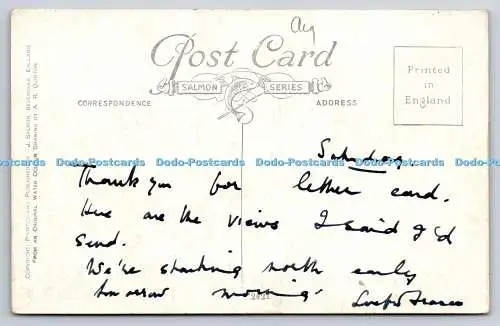 Aug
Post Card
SALMON SERIES
CORRESPONDENCE
ADDRESS
Printed
in
England
COPYRIGHT. PRINTED AND PUBLISHED BY J. SALMON, SEVENOAKS, ENGLAND
FROM AN ORIGINAL WATER COLOUR DRAWING BY A. R. QUINTON
Saturday.
Dodo-Postcards Dodo-Postcards Dodo-Postcards Dodo-Postcards Dodo-Postcards
Thank you for letter card.
Here are the views I said I'd
send.
We're starting north early
tomorrow morning.
2421